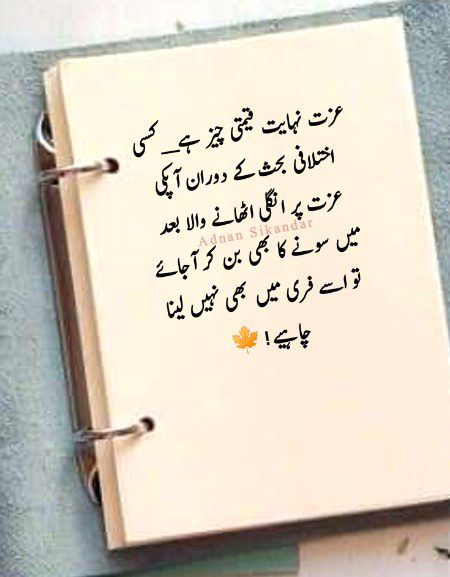 عزت نہایت قیمتی چیز ہے_ کسی
اختلافی بحث کے دوران آپکی
عزت پر انگلی اٹھانے والا بعد
Adnan Sikandar
میں سونے کا بھی بن کر آجائے
تو اسے فری میں بھی نہیں لینا
چاہیے! 🍁